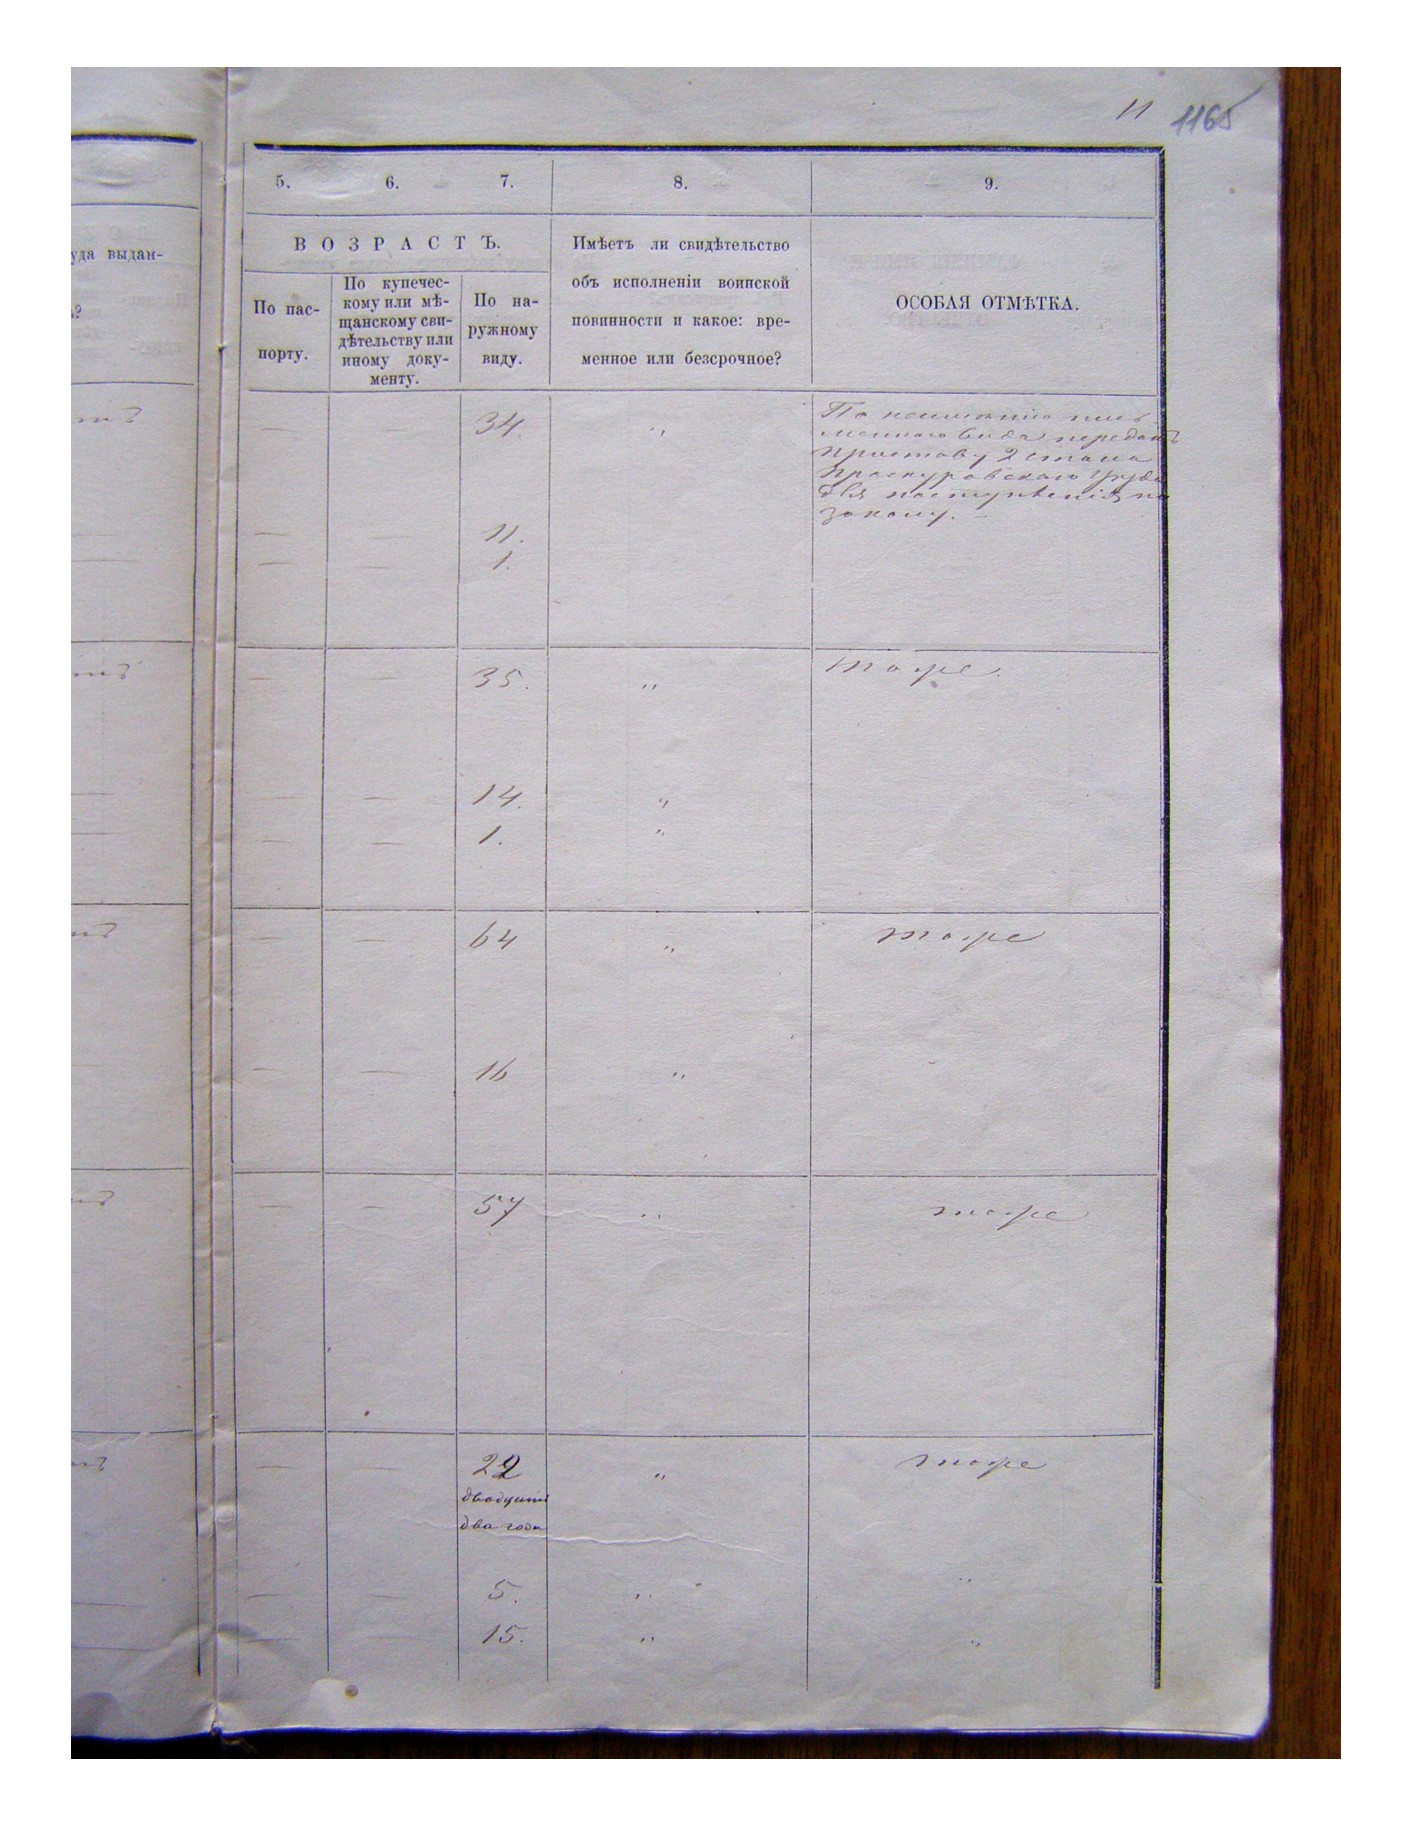 11 1165
5. 6. 7. 8. 9.
уда выдан-
ь?
ВОЗРАСТЪ.
По пас-
порту.
По купечес-
кому или мѣ-
щанскому сви-
дѣтельству или
иному доку-
менту.
По на-
ружному
виду.
Имѣетъ ли свидѣтельство
объ исполненіи воинской
повинности и какое: вре-
менное или безсрочное?
ОСОБАЯ ОТМѢТКА.
— — 34. „
По неимѣнію пись
меннаго вида переданъ
Приставу 2 стана
Проскуровскаго Уѣзда
для поступленія по
закону. —
— — 11.
— — 1.
— — 35. „ тоже.
— — 14. „
— — 1. „
— — 64 „ тоже
— — 16 „
— — 57 „ тоже
— — 22 „ тоже
двадцать
два года
— — 5. „ „
— — 15. „ „